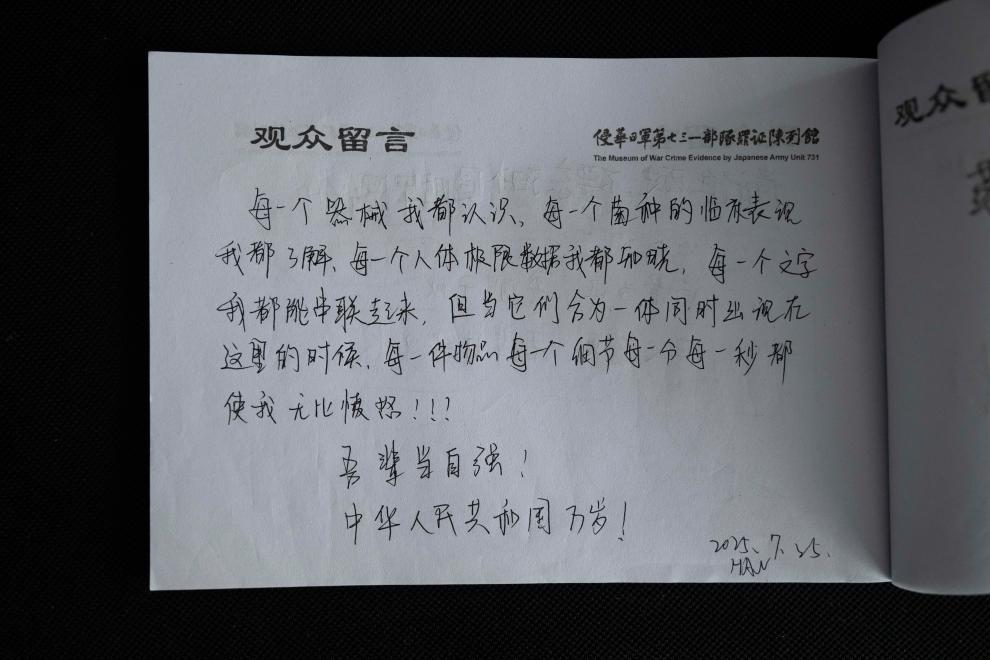 观众留言
侵華日軍第七三一部隊罪证陳列館
The Museum of War Crime Evidence by Japanese Army Unit 731
每一个器械我都认识,每一个菌种的临床表现
我都了解,每一个人体极限数据我都知晓,每一个文字
我都能串联起来,但当它们合为一体同时出现在
这里的时候,每一件物品每一个细节每一分每一秒都
使我无比愤怒!!!
吾辈当自强!
中华人民共和国万岁!
2025.7.25.
HAN
观众留